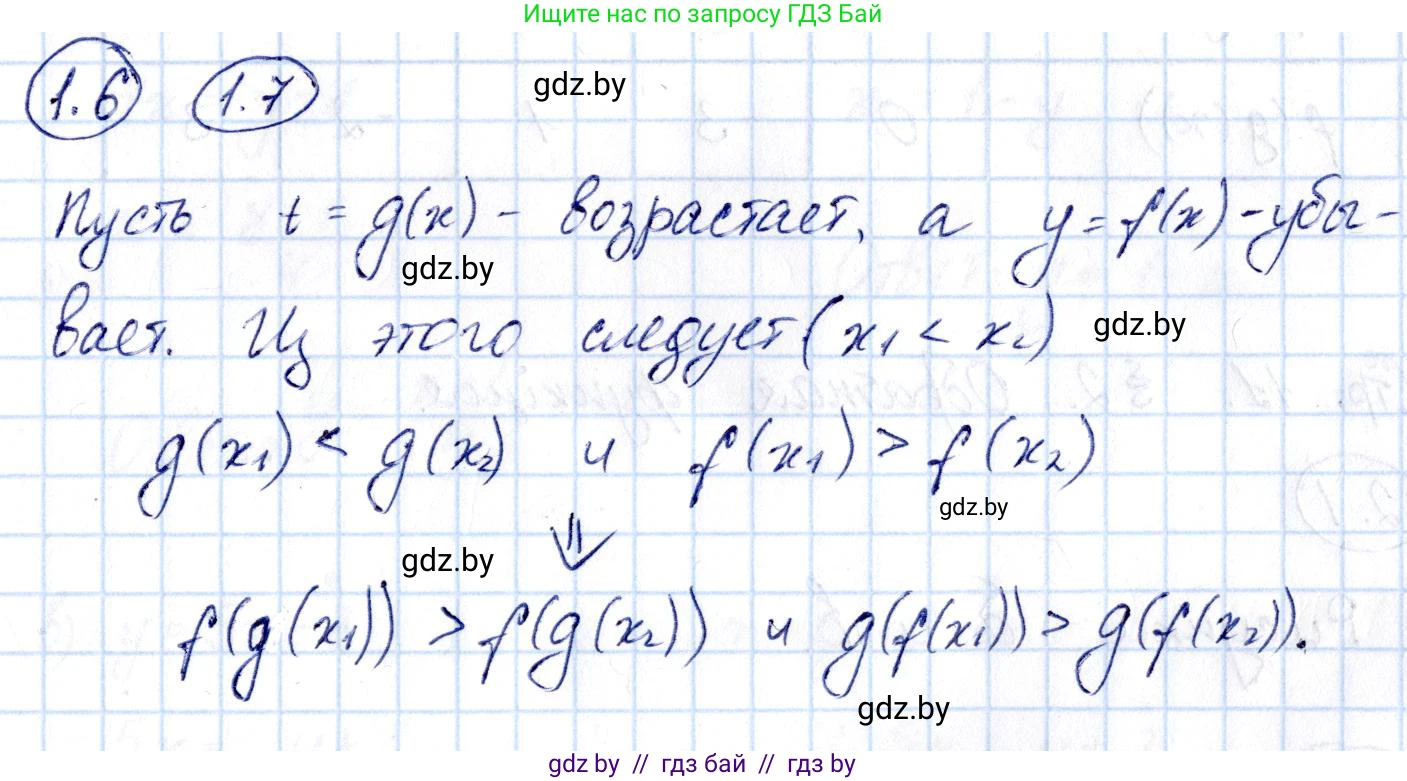 Ищите нас по запросу ГДЗ Бай
1.6 1.7 gdz.by
Пусть t = g(x) - возрастает, а y = f(x) - убы-
gdz.by
вает. Из этого следует (x₁ < x₂) gdz.by
g(x₁) < g(x₂) и f(x₁) > f(x₂)
gdz.by
⇓
gdz.by
f(g(x₁)) > f(g(x₂)) и g(f(x₁)) > g(f(x₂)).
gdz.by
gdz by // гдз бай // гдз by